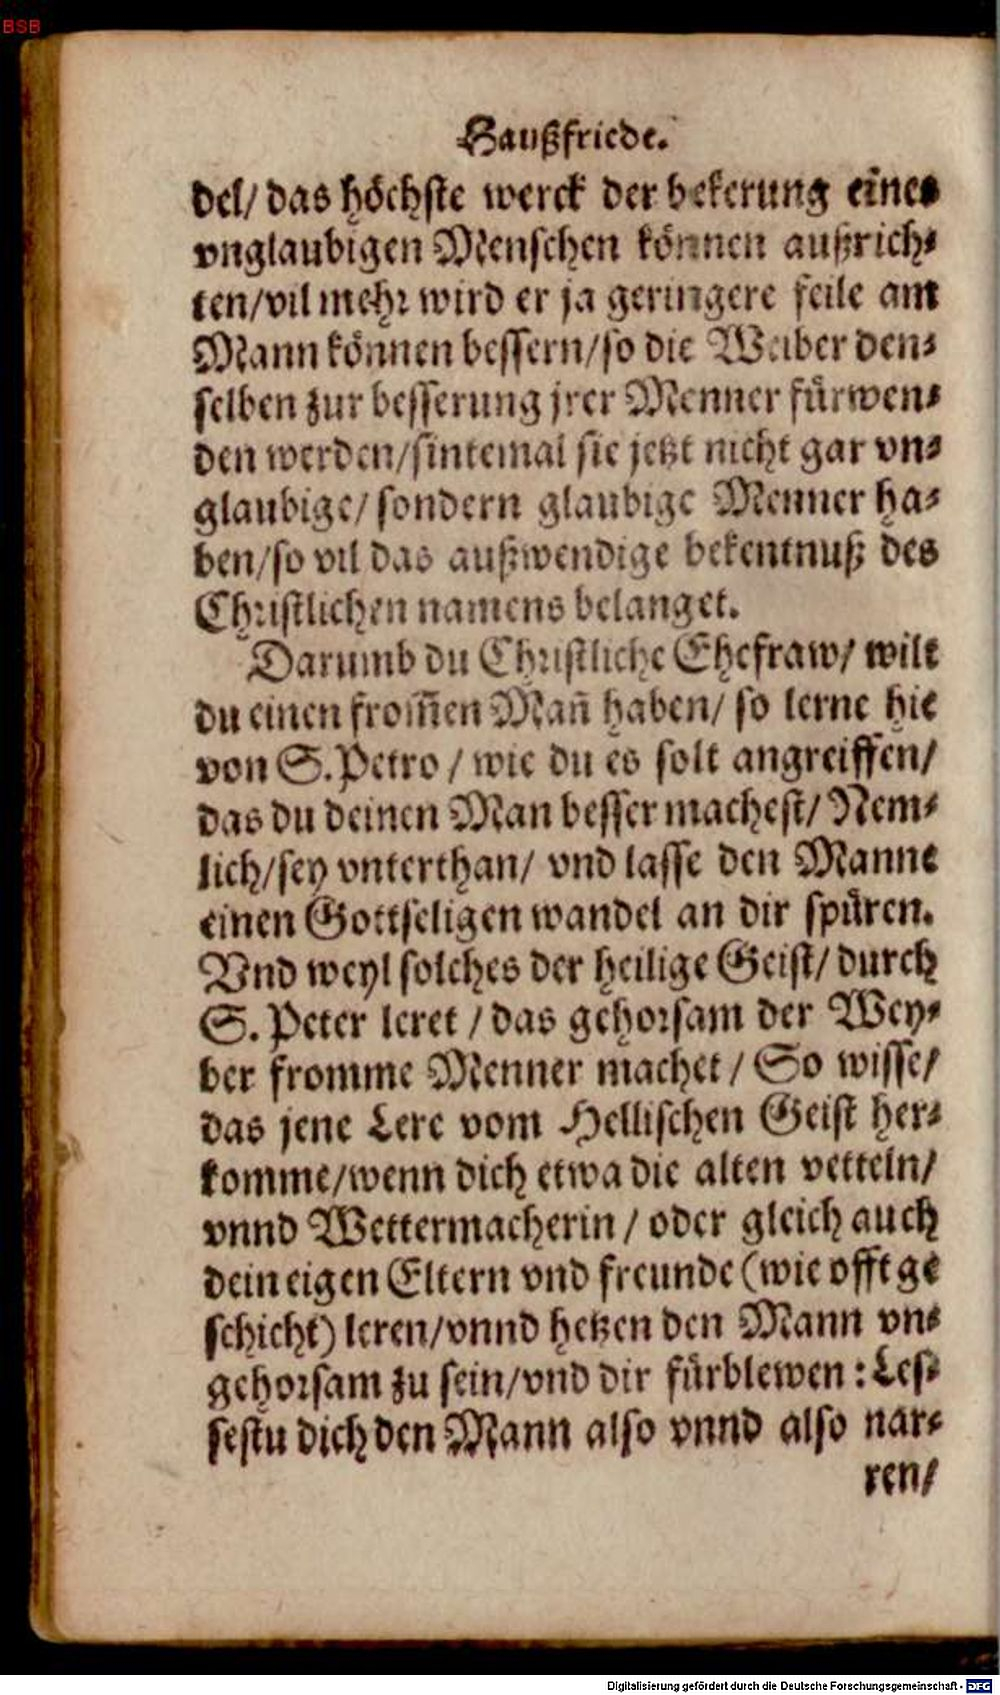 BSB
Haußfriede.
del/ das höchste werck der bekerung eines
vnglaubigen Menschen können außrich⸗
ten/vil mehr wird er ja geringere feile am
Mann können bessern/so die Weiber den⸗
selben zur besserung jrer Menner fürwen⸗
den werden/sintemal sie jetzt nicht gar vn⸗
glaubige/ sondern glaubige Menner ha⸗
ben/so vil das außwendige bekentnuß des
Christlichen namens belanget.
Darumb du Christliche Ehefraw/ wilt
du einen from̃en Mañ haben/ so lerne hie
von S. Petro / wie du es solt angreiffen/
das du deinen Man besser machest/ Nem⸗
lich/sey vnterthan/ vnd lasse den Manne
einen Gottseligen wandel an dir spüren.
Vnd weyl solches der heilige Geist/ durch
S. Peter leret / das gehorsam der Wey⸗
ber fromme Menner machet / So wisse/
das jene Lere vom Hellischen Geist her⸗
komme/wenn dich etwa die alten vetteln/
vnnd Wettermacherin / oder gleich auch
dein eigen Eltern vnd freunde (wie offt ge
schicht) leren/vnnd hetzen den Mann vn⸗
gehorsam zu sein/vnd dir fürblewen : Les⸗
sestu dich den Mann also vnnd also nar⸗
ren/
Digitalisierung gefördert durch die Deutsche Forschungsgemeinschaft - DFG